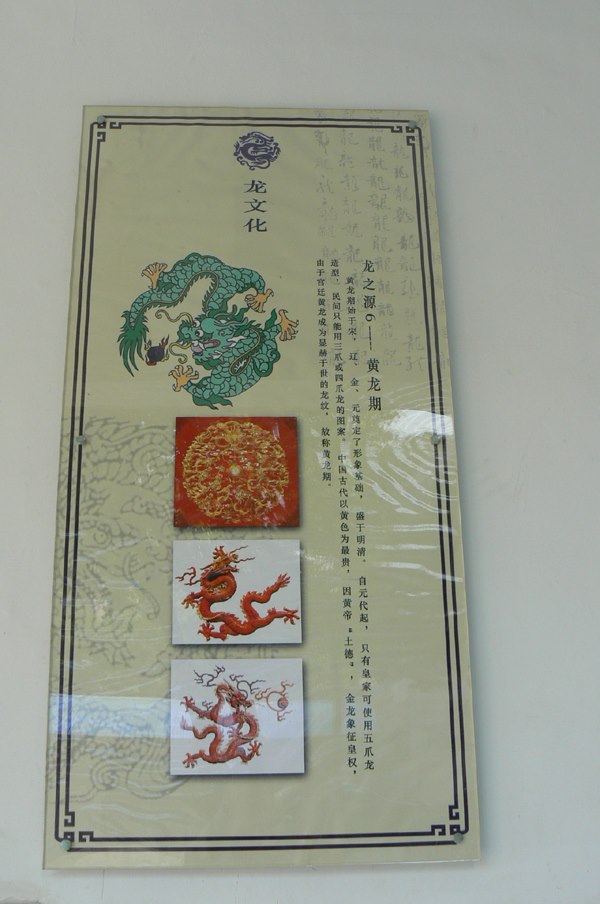 龙文化
龙之源6——黄龙期
黄龙期始于宋，辽、金、元奠定了形象基础，盛于明清。自元代起，只有皇家可使用五爪龙
造型，民间只能用三爪或四爪龙的图案。中国古代以黄色为最贵，因黄帝“土德”，金龙象征皇权，
由于宫廷黄龙成为显赫于世的龙纹，故称黄龙期。